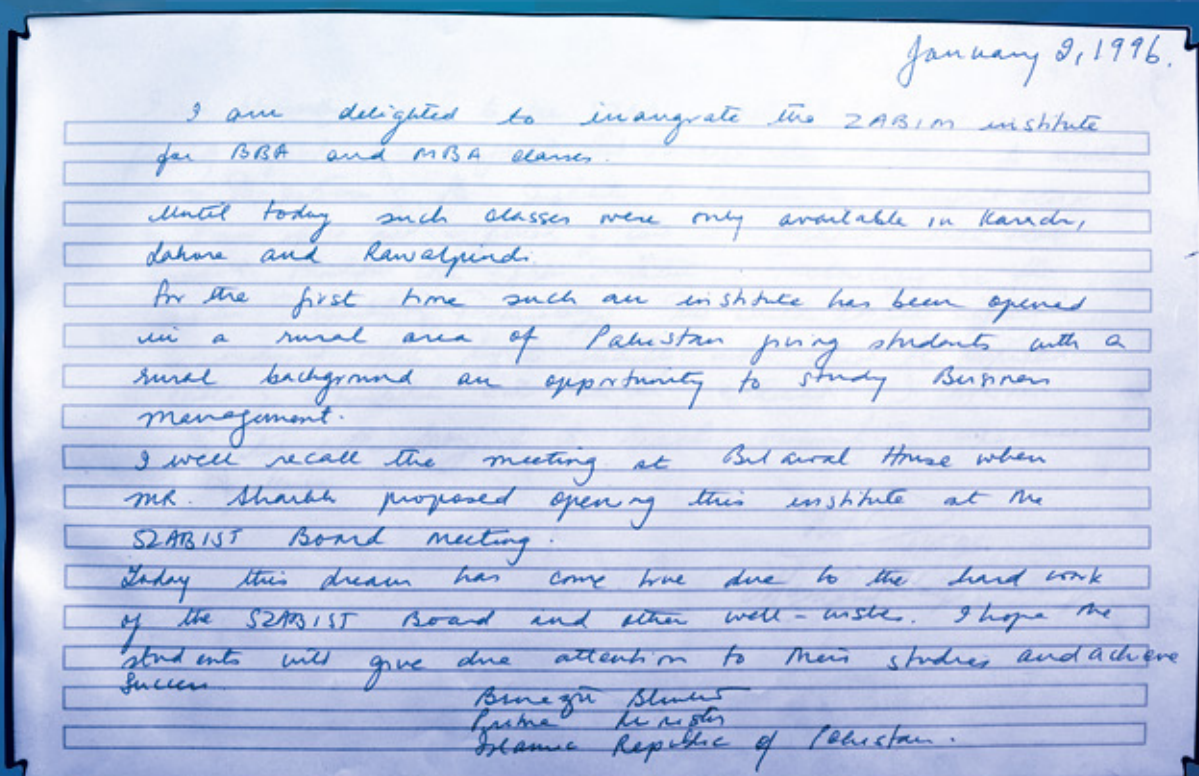 January 2, 1996.
I am delighted to inaugrate the ZABIM institute
for BBA and MBA classes.
Until today such classes were only available in Karachi,
Lahore and Rawalpindi.
For the first time such an institute has been opened
in a rural area of Pakistan giving students with a
rural background an opportunity to study Business
Management.
I well recall the meeting at Bilawal House when
MR. Sharikh proposed opening this institute at the
SZABIST Board Meeting.
Today this dream has come true due to the hard work
of the SZABIST Board and other well-wishers. I hope the
students will give due attention to their studies and achieve
success.
Benazir Bhutto
Prime Minister
Islamic Republic of Pakistan.